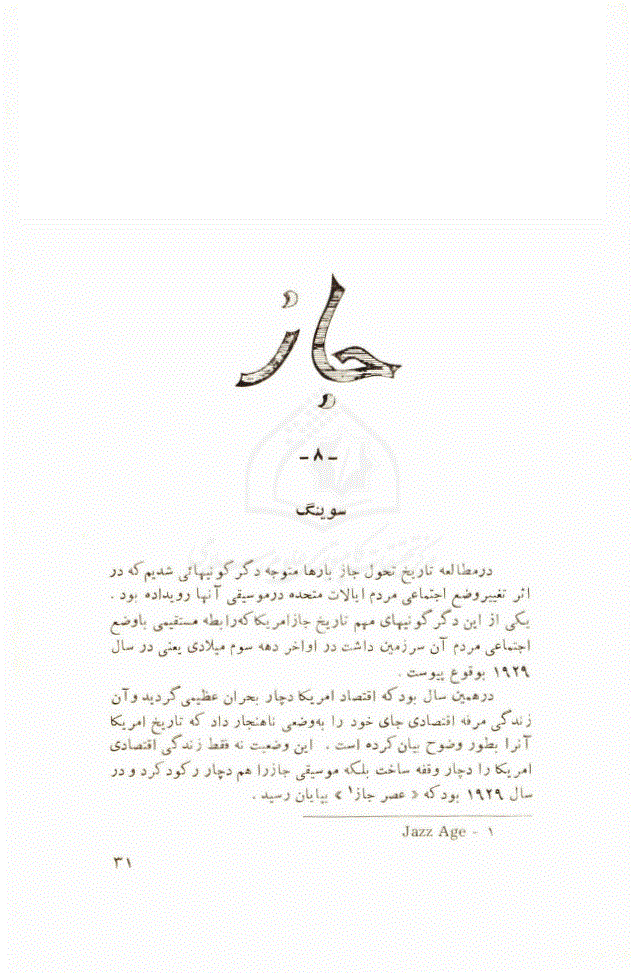 جاز
- ۸ -
سوینگ
درمطالعه تاریخ تحول جاز بارها متوجه دگرگونیهائی شدیم که در
اثر تغییر وضع اجتماعی مردم ایالات متحده درموسیقی آنها رویداده بود .
یکی از این دگرگونیهای مهم تاریخ جاز امریکا که رابطه مستقیمی باوضع
اجتماعی مردم آن سرزمین داشت در اواخر دهه سوم میلادی یعنی در سال
۱۹۲۹ بوقوع پیوست .
درهمین سال بود که اقتصاد امریکا دچار بحران عظیمی گردید و آن
زندگی مرفه اقتصادی جای خود را به وضعی ناهنجار داد که تاریخ امریکا
آنرا بطور وضوح بیان کرده است . این وضعیت نه فقط زندگی اقتصادی
امریکا را دچار وقفه ساخت بلکه موسیقی جازرا هم دچار رکود کرد و در
سال ۱۹۲۹ بود که « عصر جاز۱ » بپایان رسید .
۱ - Jazz Age
۳۱